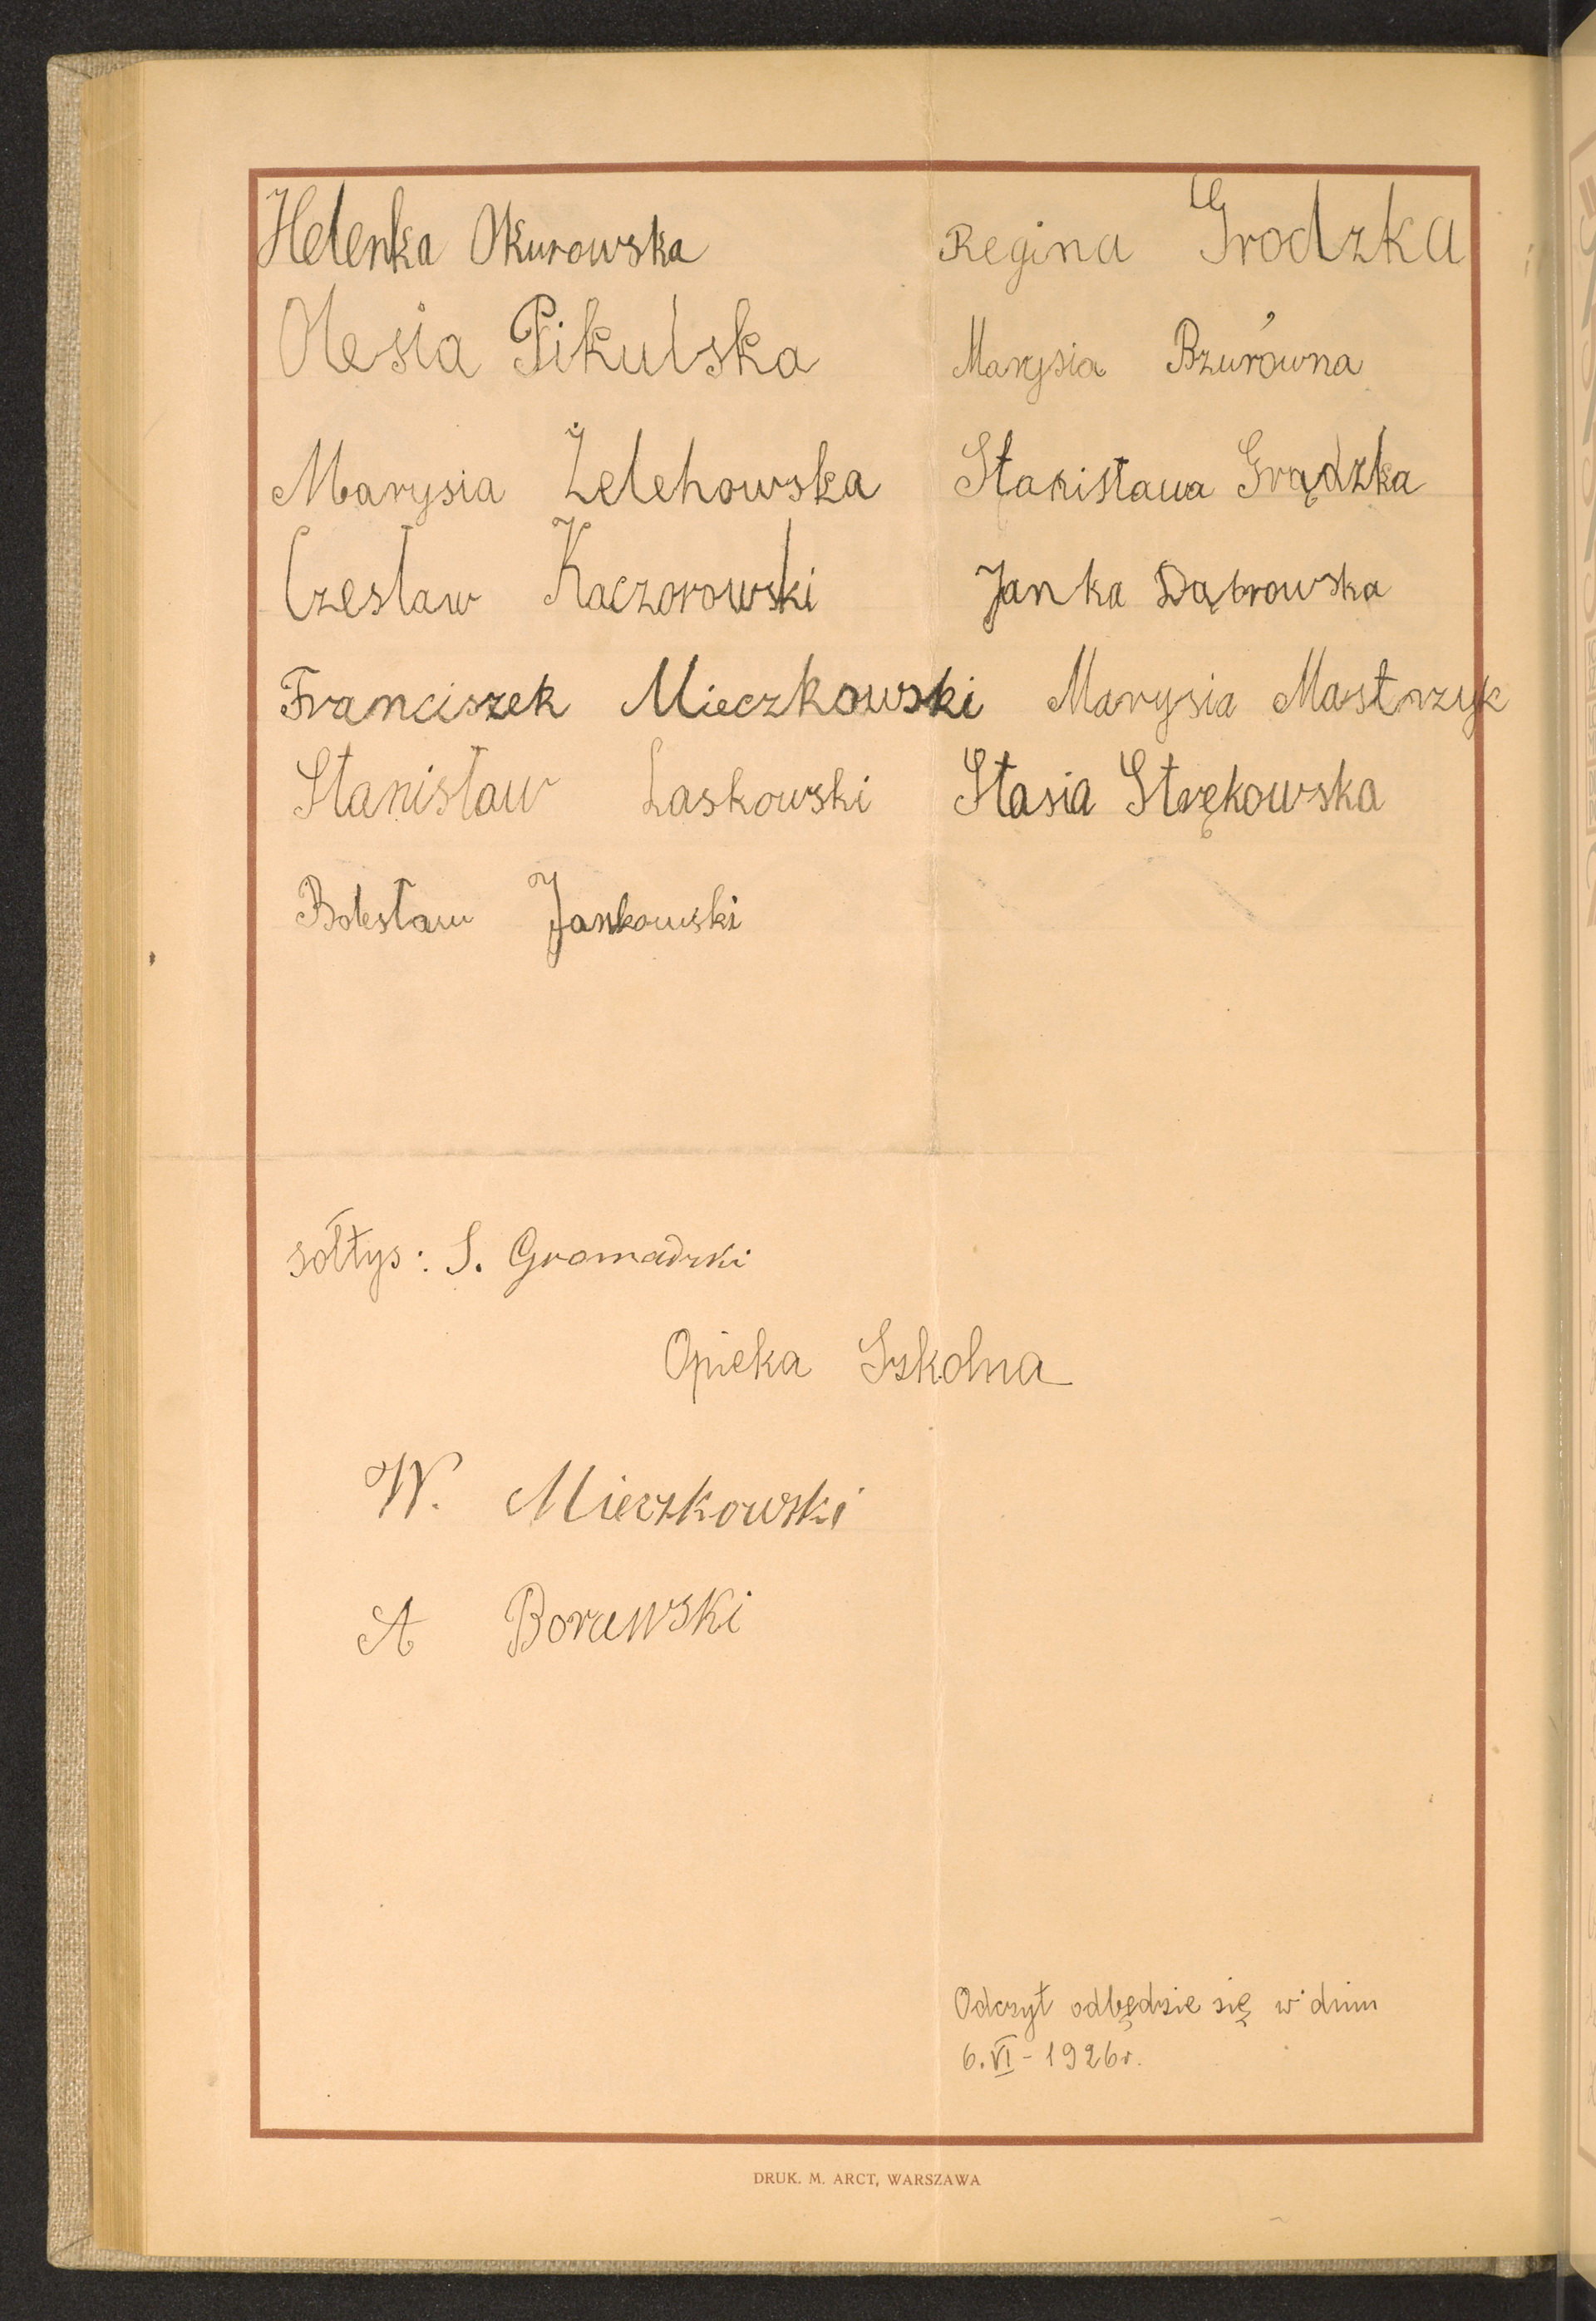 Helenka Okurowska
Olesia Pikulska
Marysia Żelehowska
Czesław Kaczorowski
Franciszek Mieczkowski
Stanisław Laskowski
Bolesław Jankowski
Regina Grodzka
Marysia Bzurówna
Stanisława Grądzka
Janka Dąbrowska
Marysia Mastrzyk
Stasia Strękowska
sołtys: S. Gromadzki
Opieka Szkolna
W. Mieczkowski
A Borawski
Odczyt odbędzie się w dniu
6.VI-1926r.
DRUK. M. ARCT, WARSZAWA